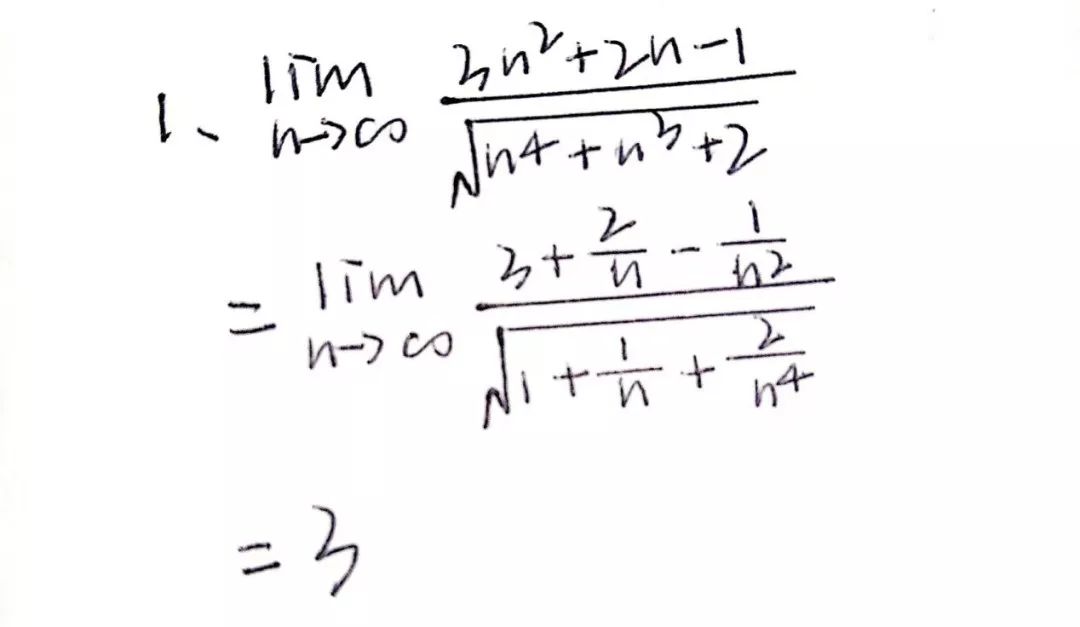 1、 lim n→∞ (3n² + 2n - 1) / √(n⁴ + n³ + 2)
= lim n→∞ (3 + 2/n - 1/n²) / √(1 + 1/n + 2/n⁴)
= 3